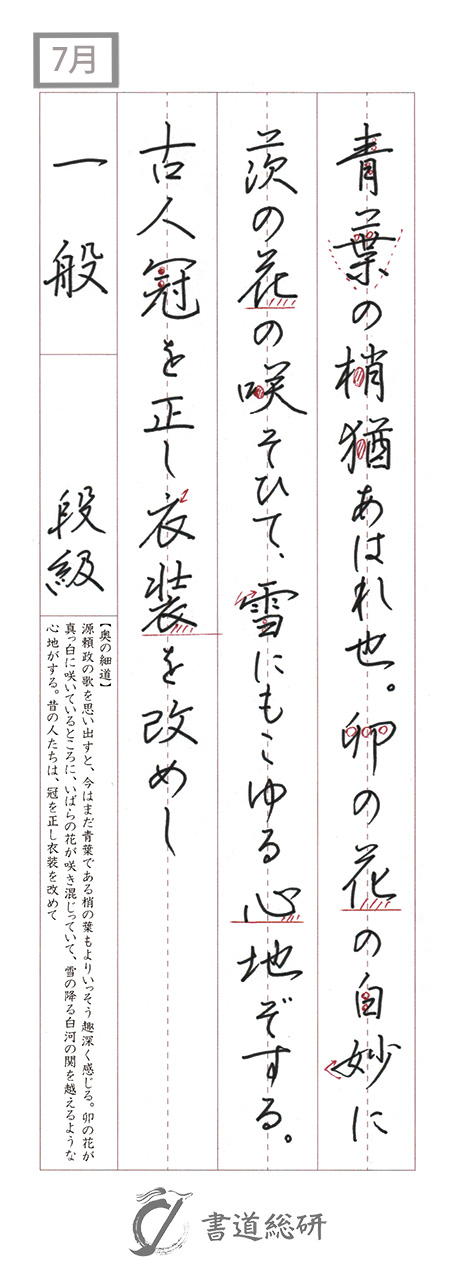 7月
青葉の梢猶あはれ也。卯の花の白妙に
茨の花の咲そひて、雪にもこゆる心地ぞする。
古人冠を正し衣装を改めし
一般
段級
【奥の細道】
源頼政の歌を思い出すと、今はまだ青葉である梢の葉もよりいっそう趣深く感じる。卯の花が
真っ白に咲いているところに、いばらの花が咲き混じっていて、雪の降る白河の関を越えるような
心地がする。昔の人たちは、冠を正し衣装を改めて
書道総研